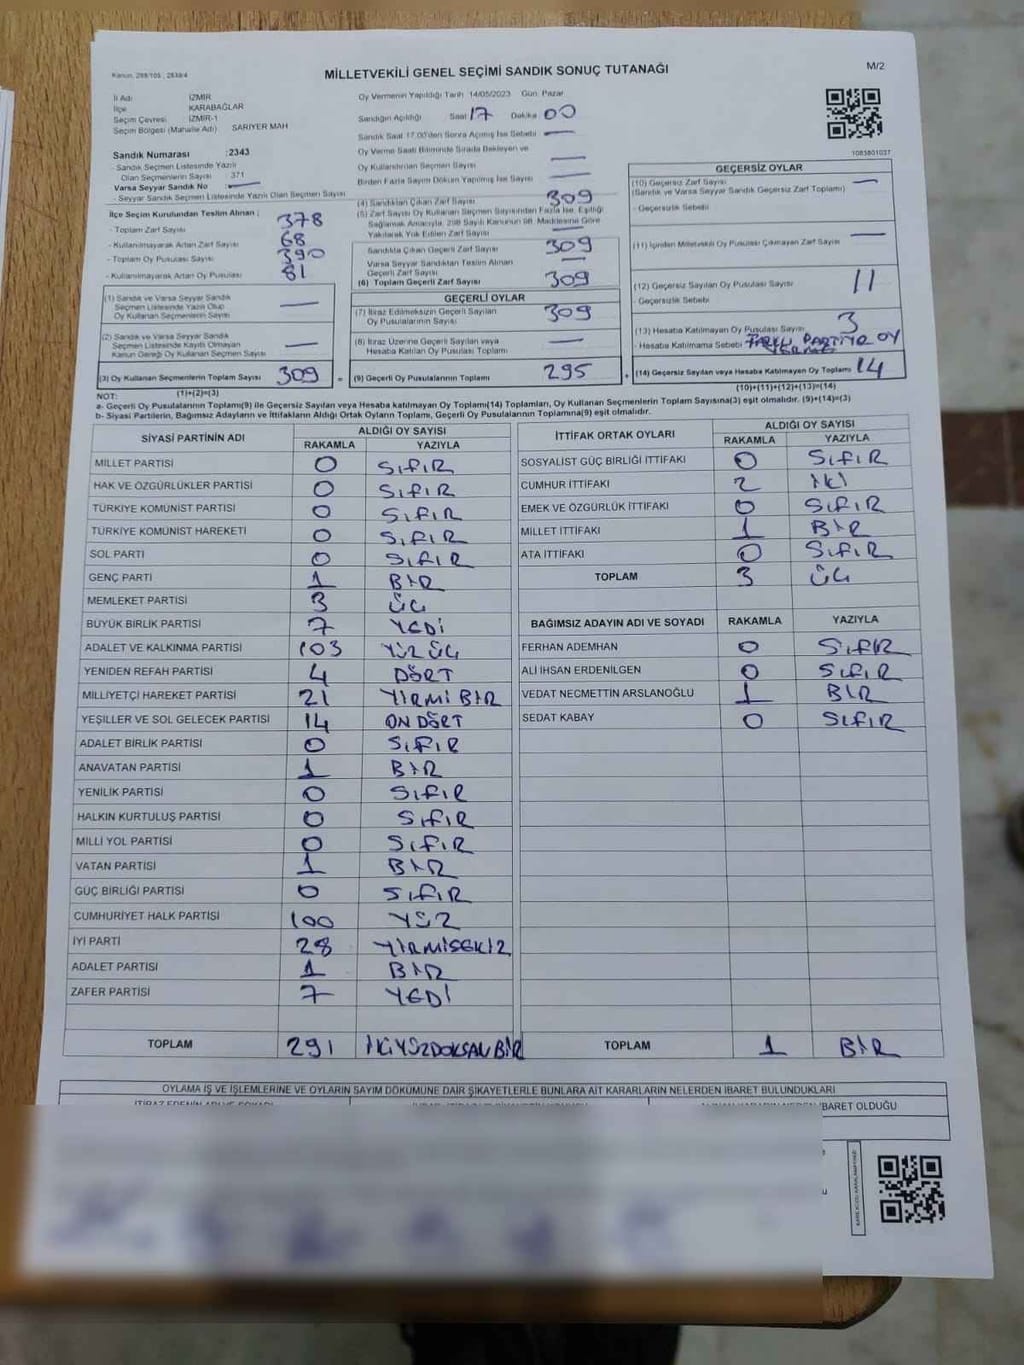 Kanun, 298/105 , 2839/4
MİLLETVEKİLİ GENEL SEÇİMİ SANDIK SONUÇ TUTANAĞI
M/2
İl Adı İZMİR
İlçe KARABAĞLAR
Seçim Çevresi İZMİR-1
Seçim Bölgesi (Mahalle Adı) SARIYER MAH
Sandık Numarası :2343
- Sandık Seçmen Listesinde Yazılı
Olan Seçmenlerin Sayısı 371
Varsa Seyyar Sandık No
- Seyyar Sandık Seçmen Listesinde Yazılı Olan Seçmen Sayısı
İlçe Seçim Kurulundan Teslim Alınan ;
- Toplam Zarf Sayısı 378
- Kullanılmayarak Artan Zarf Sayısı 68
- Toplam Oy Pusulası Sayısı 390
- Kullanılmayarak Artan Oy Pusulası 81
(1) Sandık ve Varsa Seyyar Sandık
Seçmen Listesinde Yazılı Olup
Oy Kullanan Seçmenlerin Sayısı
(2) Sandık ve Varsa Seyyar Sandık
Seçmen Listesinde Kayıtlı Olmayan
Kanun Gereği Oy Kullanan Seçmen Sayısı
(3) Oy Kullanan Seçmenlerin Toplam Sayısı 309
(1)+(2)=(3)
Oy Vermenin Yapıldığı Tarih 14/05/2023 Gün: Pazar
Sandığın Açıldığı Saat 17 Dakika 00
Sandık Saat 17.00'den Sonra Açılmış İse Sebebi
Oy Verme Saati Bitiminde Sırada Bekleyen ve
Oy Kullandırılan Seçmen Sayısı
Birden Fazla Sayım Döküm Yapılmış İse Sayısı
(4) Sandıktan Çıkan Zarf Sayısı 309
(5) Zarf Sayısı Oy Kullanan Seçmen Sayısından Fazla İse, Eşitliği
Sağlamak Amacıyla, 298 Sayılı Kanunun 98. Maddesine Göre
Yakılarak Yok Edilen Zarf Sayısı
Sandıkta Çıkan Geçerli Zarf Sayısı 309
Varsa Seyyar Sandıktan Teslim Alınan
Geçerli Zarf Sayısı
(6) Toplam Geçerli Zarf Sayısı 309
GEÇERLİ OYLAR
(7) İtiraz Edilmeksizin Geçerli Sayılan
Oy Pusulalarının Sayısı 309
(8) İtiraz Üzerine Geçerli Sayılan veya
Hesaba Katılan Oy Pusulası Toplamı
= (9) Geçerli Oy Pusulalarının Toplamı 295
1083801037
GEÇERSİZ OYLAR
(10) Geçersiz Zarf Sayısı
(Sandık ve Varsa Seyyar Sandık Geçersiz Zarf Toplamı)
- Geçersizlik Sebebi
(11) İçinden Milletvekili Oy Pusulası Çıkmayan Zarf Sayısı
(12) Geçersiz Sayılan Oy Pusulası Sayısı 11
- Geçersizlik Sebebi
(13) Hesaba Katılmayan Oy Pusulası Sayısı 3
- Hesaba Katılmama Sebebi FARKLI PARTİYE OY
VERME
+ (14) Geçersiz Sayılan veya Hesaba Katılmayan Oy Toplamı 14
(10)+(11)+(12)+(13)=(14)
NOT:
a- Geçerli Oy Pusulalarının Toplamı(9) ile Geçersiz Sayılan veya Hesaba katılmayan Oy Toplamı(14) Toplamları, Oy Kullanan Seçmenlerin Toplam Sayısına(3) eşit olmalıdır. (9)+(14)=(3)
b- Siyasi Partilerin, Bağımsız Adayların ve İttifakların Aldığı Ortak Oyların Toplamı, Geçerli Oy Pusulalarının Toplamına(9) eşit olmalıdır.
SİYASİ PARTİNİN ADI ALDIĞI OY SAYISI
RAKAMLA YAZIYLA
MİLLET PARTİSİ 0 SIFIR
HAK VE ÖZGÜRLÜKLER PARTİSİ 0 SIFIR
TÜRKİYE KOMÜNİST PARTİSİ 0 SIFIR
TÜRKİYE KOMÜNİST HAREKETİ 0 SIFIR
SOL PARTİ 0 SIFIR
GENÇ PARTİ 1 BİR
MEMLEKET PARTİSİ 3 ÜÇ
BÜYÜK BİRLİK PARTİSİ 7 YEDİ
ADALET VE KALKINMA PARTİSİ 103 YÜZ ÜÇ
YENİDEN REFAH PARTİSİ 4 DÖRT
MİLLİYETÇİ HAREKET PARTİSİ 21 YİRMİ BİR
YEŞİLLER VE SOL GELECEK PARTİSİ 14 ON DÖRT
ADALET BİRLİK PARTİSİ 0 SIFIR
ANAVATAN PARTİSİ 1 BİR
YENİLİK PARTİSİ 0 SIFIR
HALKIN KURTULUŞ PARTİSİ 0 SIFIR
MİLLİ YOL PARTİSİ 0 SIFIR
VATAN PARTİSİ 1 BİR
GÜÇ BİRLİĞİ PARTİSİ 0 SIFIR
CUMHURİYET HALK PARTİSİ 100 YÜZ
İYİ PARTİ 28 YİRMİSEKİZ
ADALET PARTİSİ 1 BİR
ZAFER PARTİSİ 7 YEDİ
TOPLAM 291 İKİYÜZDOKSAN BİR
İTTİFAK ORTAK OYLARI ALDIĞI OY SAYISI
RAKAMLA YAZIYLA
SOSYALİST GÜÇ BİRLİĞİ İTTİFAKI 0 SIFIR
CUMHUR İTTİFAKI 2 İKİ
EMEK VE ÖZGÜRLÜK İTTİFAKI 0 SIFIR
MİLLET İTTİFAKI 1 BİR
ATA İTTİFAKI 0 SIFIR
TOPLAM 3 ÜÇ
BAĞIMSIZ ADAYIN ADI VE SOYADI RAKAMLA YAZIYLA
FERHAN ADEMHAN 0 SIFIR
ALİ İHSAN ERDENİLGEN 0 SIFIR
VEDAT NECMETTİN ARSLANOĞLU 1 BİR
SEDAT KABAY 0 SIFIR
TOPLAM 1 BİR
OYLAMA İŞ VE İŞLEMLERİNE VE OYLARIN SAYIM DÖKÜMÜNE DAİR ŞİKAYETLERLE BUNLARA AİT KARARLARIN NELERDEN İBARET BULUNDUKLARI
İBARET OLDUĞU